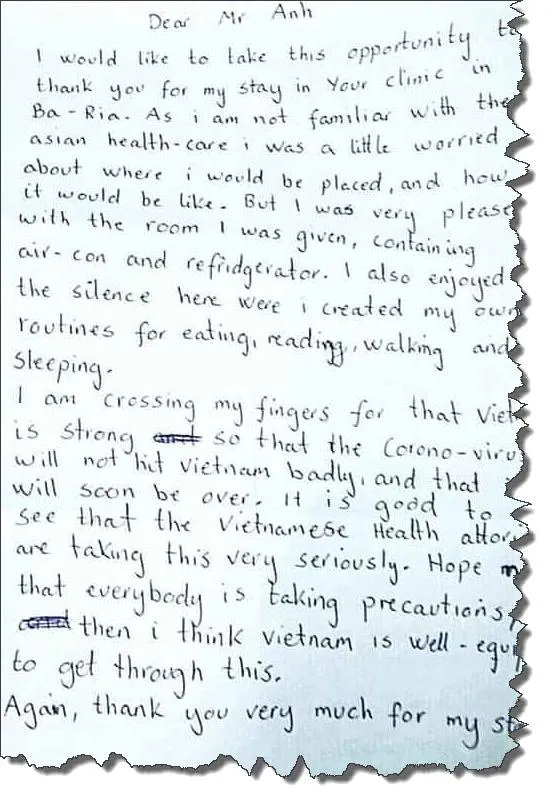 Dear Mr Anh
I would like to take this opportunity to
thank you for my stay in Your clinic in
Ba-Ria. As i am not familiar with the
asian health-care i was a little worried
about where i would be placed, and how
it would be like. But I was very please
with the room I was given, containing
air-con and refridgerator. I also enjoyed
the silence here were i created my own
routines for eating, reading, walking and
sleeping.
I am crossing my fingers for that Viet
is strong so that the Corono-viru
will not hit Vietnam badly, and that
will soon be over. It is good to
see that the Vietnamese Health attor
are taking this very seriously. Hope m
that everybody is taking precautions,
then i think Vietnam is well-equip
to get through this.
Again, thank you very much for my st